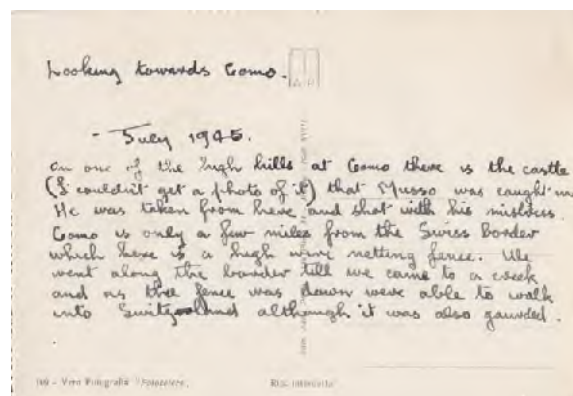 Looking towards Como.
- July 1945.
On one of the high hills at Como there is the castle
(I couldn't get a photo of it) that Musso was caught in
He was taken from here and shot with his mistress.
Como is only a few miles from the Swiss border
which here is a high wire netting fence. We
went along the boarder till we came to a creek
and as the fence was down were able to walk
into Switzerland although it was also gaurded.
109 - Vera Fotografia "Fotocelere"